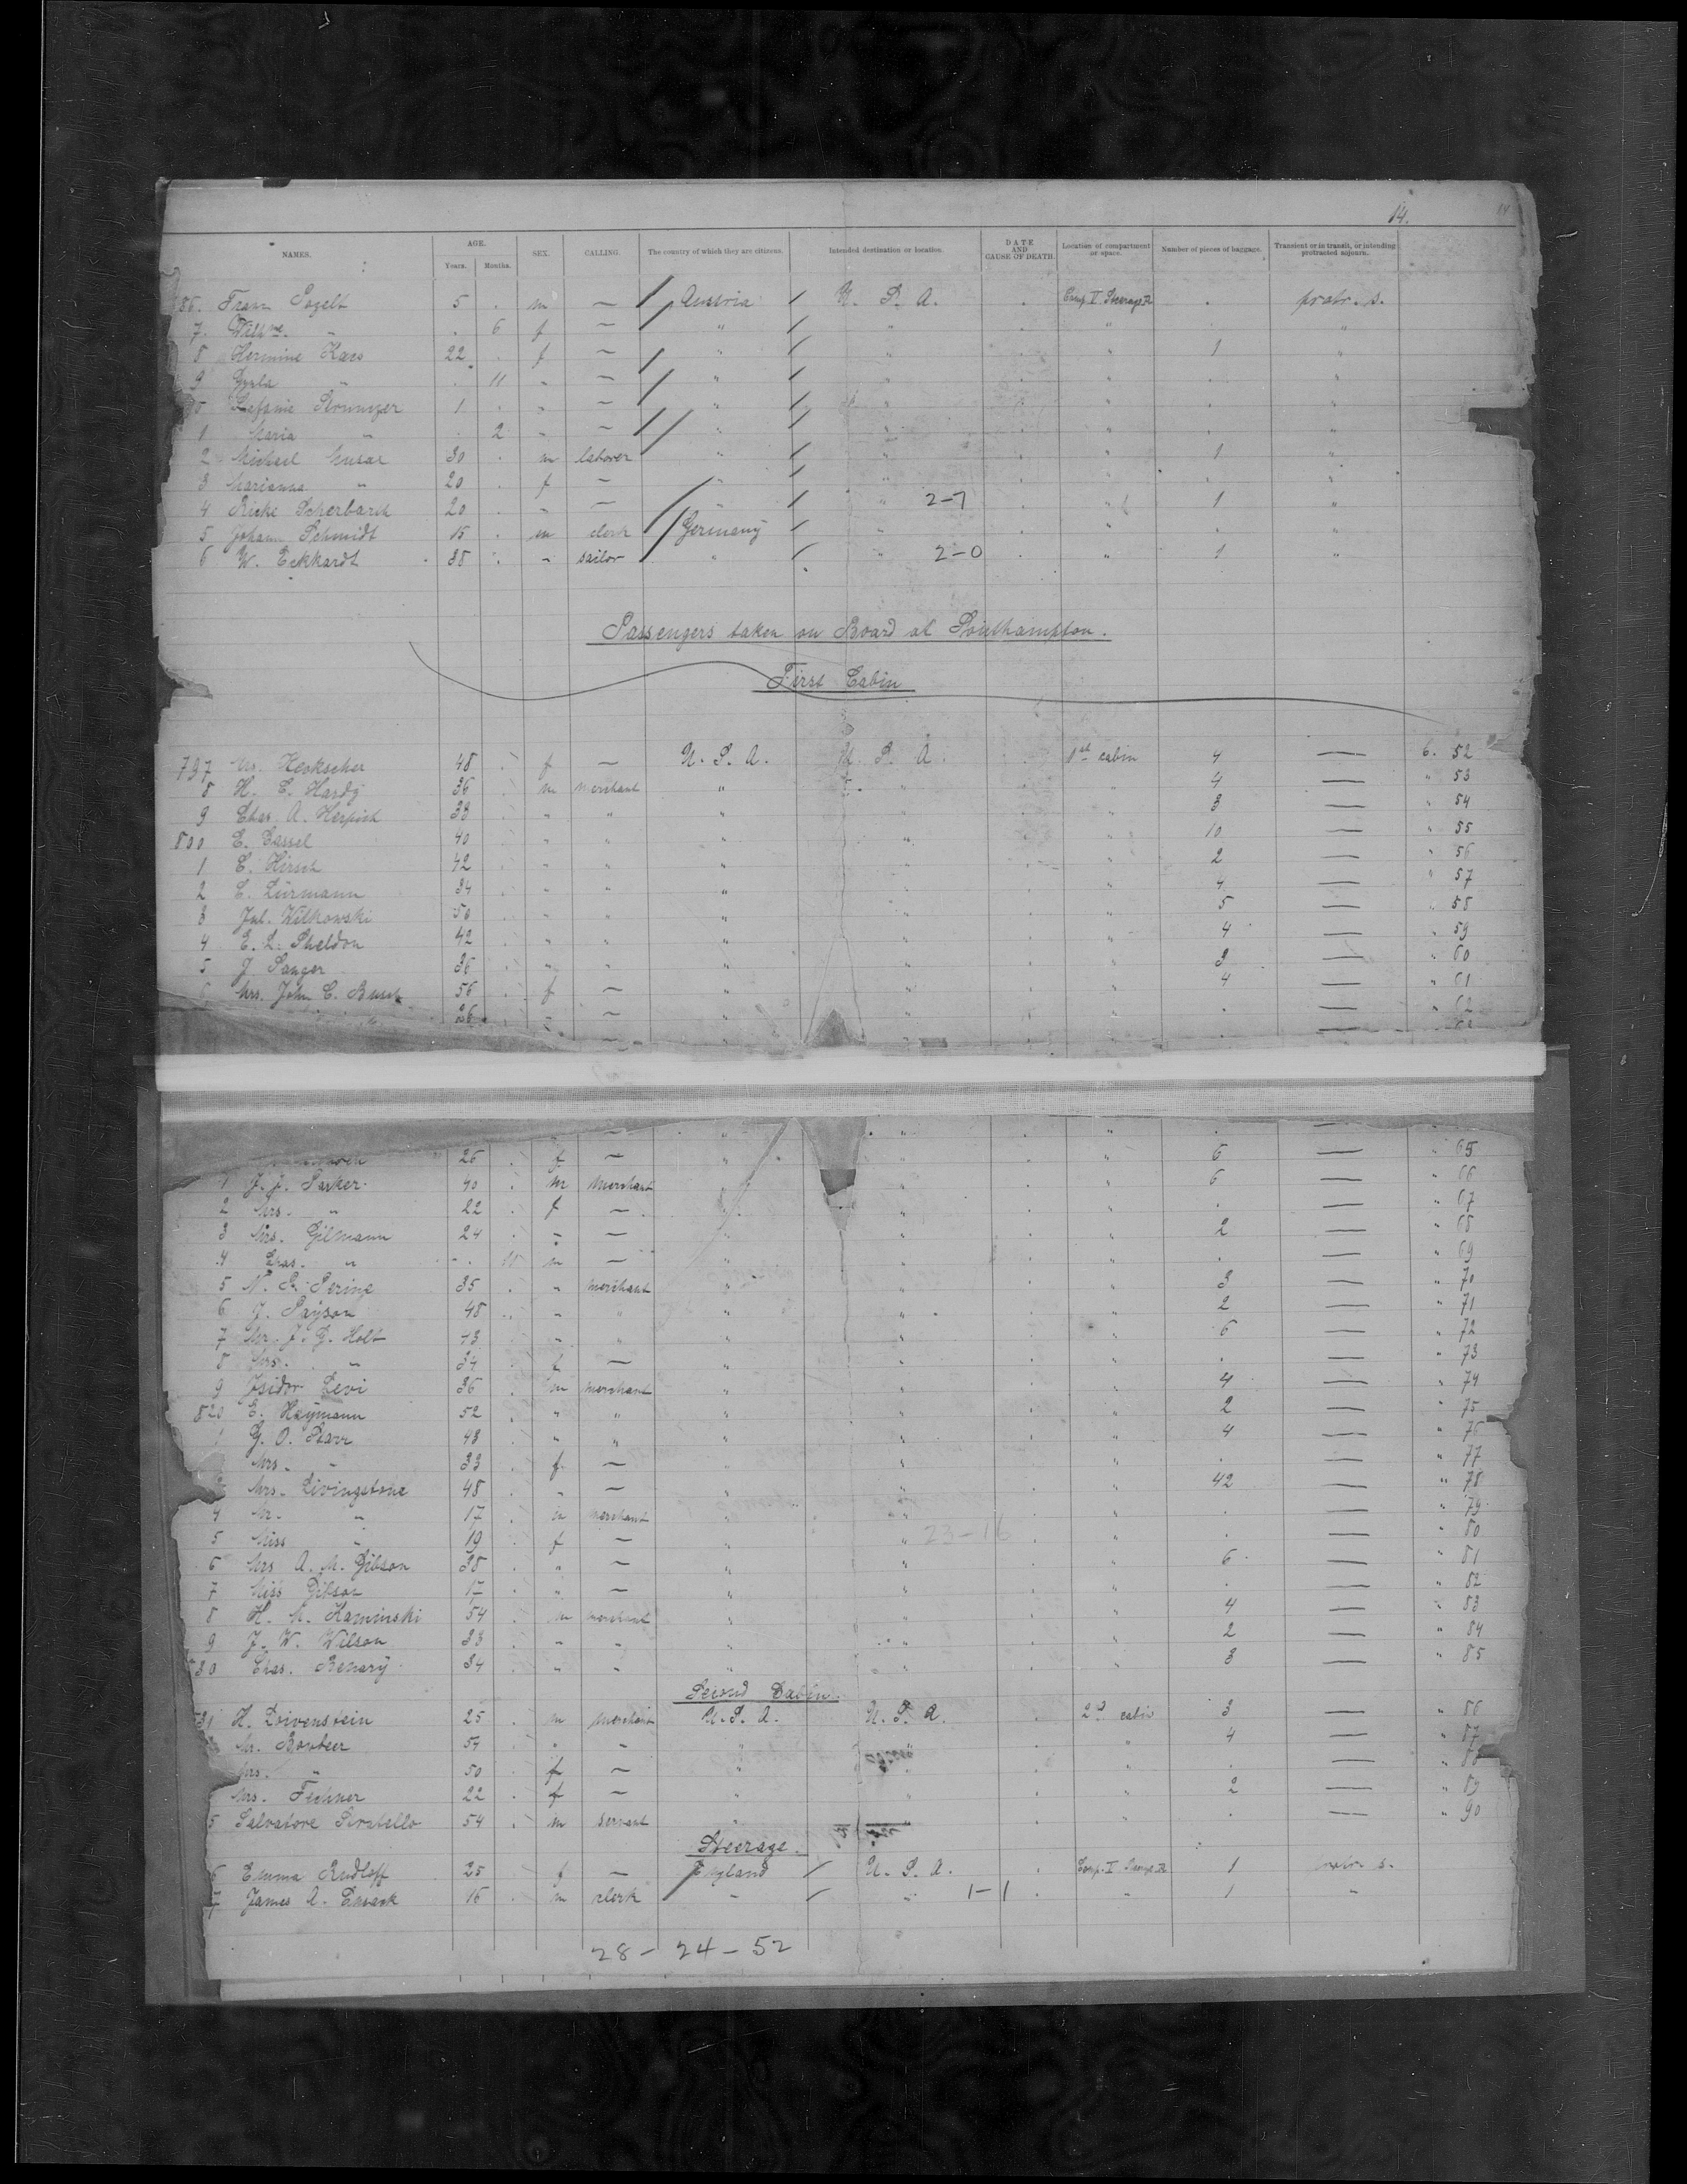 14.
14
NAMES. AGE. Years. Months. SEX. CALLING. The country of which they are citizens. Intended destination or location. DATE AND CAUSE OF DEATH. Location of compartment or space. Number of pieces of baggage. Transient or in transit, or intending protracted sojourn.
86. Franz Pozelt 5 . m — Austria U. S. A. . Comp. V Steerage protr. s.
7. " . 6 f — " " . " . "
8 Hermine 22 . f — " " . " 1 "
9 " . 11 " — " " . " . "
1 . " — " " . " . "
1 Maria " . 2 " — " " . " . "
2 Michael 30 . m laborer " " . " 1 "
3 Marianna " 20 . f — " " . " . "
4 Scherbarth 20 . " — " " 2-7 " 1 "
5 Johann Schmidt 15 . m clerk Germany " . " . "
6 W. Eckhardt 38 . " sailor " " 2-0 . " 1 "
Passengers taken on Board at Southampton.
First Cabin
797 Heckscher 48 . f — U. S. A. U. S. A. . 1st cabin 4 — 6. 52
8 H. C. Hardy 36 . m merchant " " . " 4 — " 53
9 Chas. A. 38 . " " " " . " 3 — " 54
800 E. Cassel 40 . " " " " . " 10 — " 55
1 C. Hirsch 42 . " " " " . " 2 — " 56
2 C. Lürmann 34 . " " " " . " 4 — " 57
3 Jul. Witkowski 50 . " " " " . " 5 — " 58
4 E. L. Sheldon 42 . " " " " . " 4 — " 59
5 J. Sanger 36 . " " " " . " 3 — " 60
6 Mrs. John C. 56 . f — " " . " 4 — " 61
36 . " — " " . " . — " 62
— " " . " . —
— " " . " . —
26 . f — " " . " 6 — " 65
1 J. J. Parker 40 . m merchant " " . " 6 — " 66
2 Mrs. " 22 . f — " " . " . — " 67
3 Mrs. Gilmann 24 . " — " " . " 2 — " 68
4 Chas. " . m — " " . " . — " 69
5 N. Perine 35 . " merchant " " . " 3 — " 70
6 J. Payson 48 . " " " " . " 2 — " 71
7 Mr. J. G. Holt 43 . " " " " . " 6 — " 72
8 Mrs. " 34 . f — " " . " . — " 73
9 Isidor Levi 36 . m merchant " " . " 4 — " 74
820 E. Haymann 52 . " " " " . " 2 — " 75
1 G. O. Starr 43 . " " " " . " 4 — " 76
Mrs. " 33 . f — " " . " . — " 77
3 Mrs. Livingstone 48 . " — " " . " 42 — " 78
4 Mr. " 17 . m merchant " " . " . — " 79
5 Miss " 19 . f — " " 23-16 . " . — " 80
6 Mrs A. M. Gibson 38 . " — " " . " 6 — " 81
7 Miss Gibson 17 . " — " " . " . — " 82
8 H. M. Kaminski 54 . m merchant " " . " 4 — " 83
9 J. W. Wilson 33 . " " " " . " 2 — " 84
830 Chas. Benary 34 . " " " " . " 3 — " 85
Second Cabin.
31 H. 25 . m merchant U. S. A. U. S. A. . 2d cabin 3 — " 86
Mr. 54 . " " " " . " 4 — " 87
Mrs. " 50 . f — " " . " . — " 88
Mrs. Fechner 22 . f — " " . " 2 — " 89
5 Salvatore 54 . m servant " " . " . — " 90
Steerage.
6 Emma Rudloff 25 . f — England U. S. A. . Comp. I 1 protr. s.
7 James A. 16 . m clerk " " 1-1 . " 1 "
28 - 24 - 52